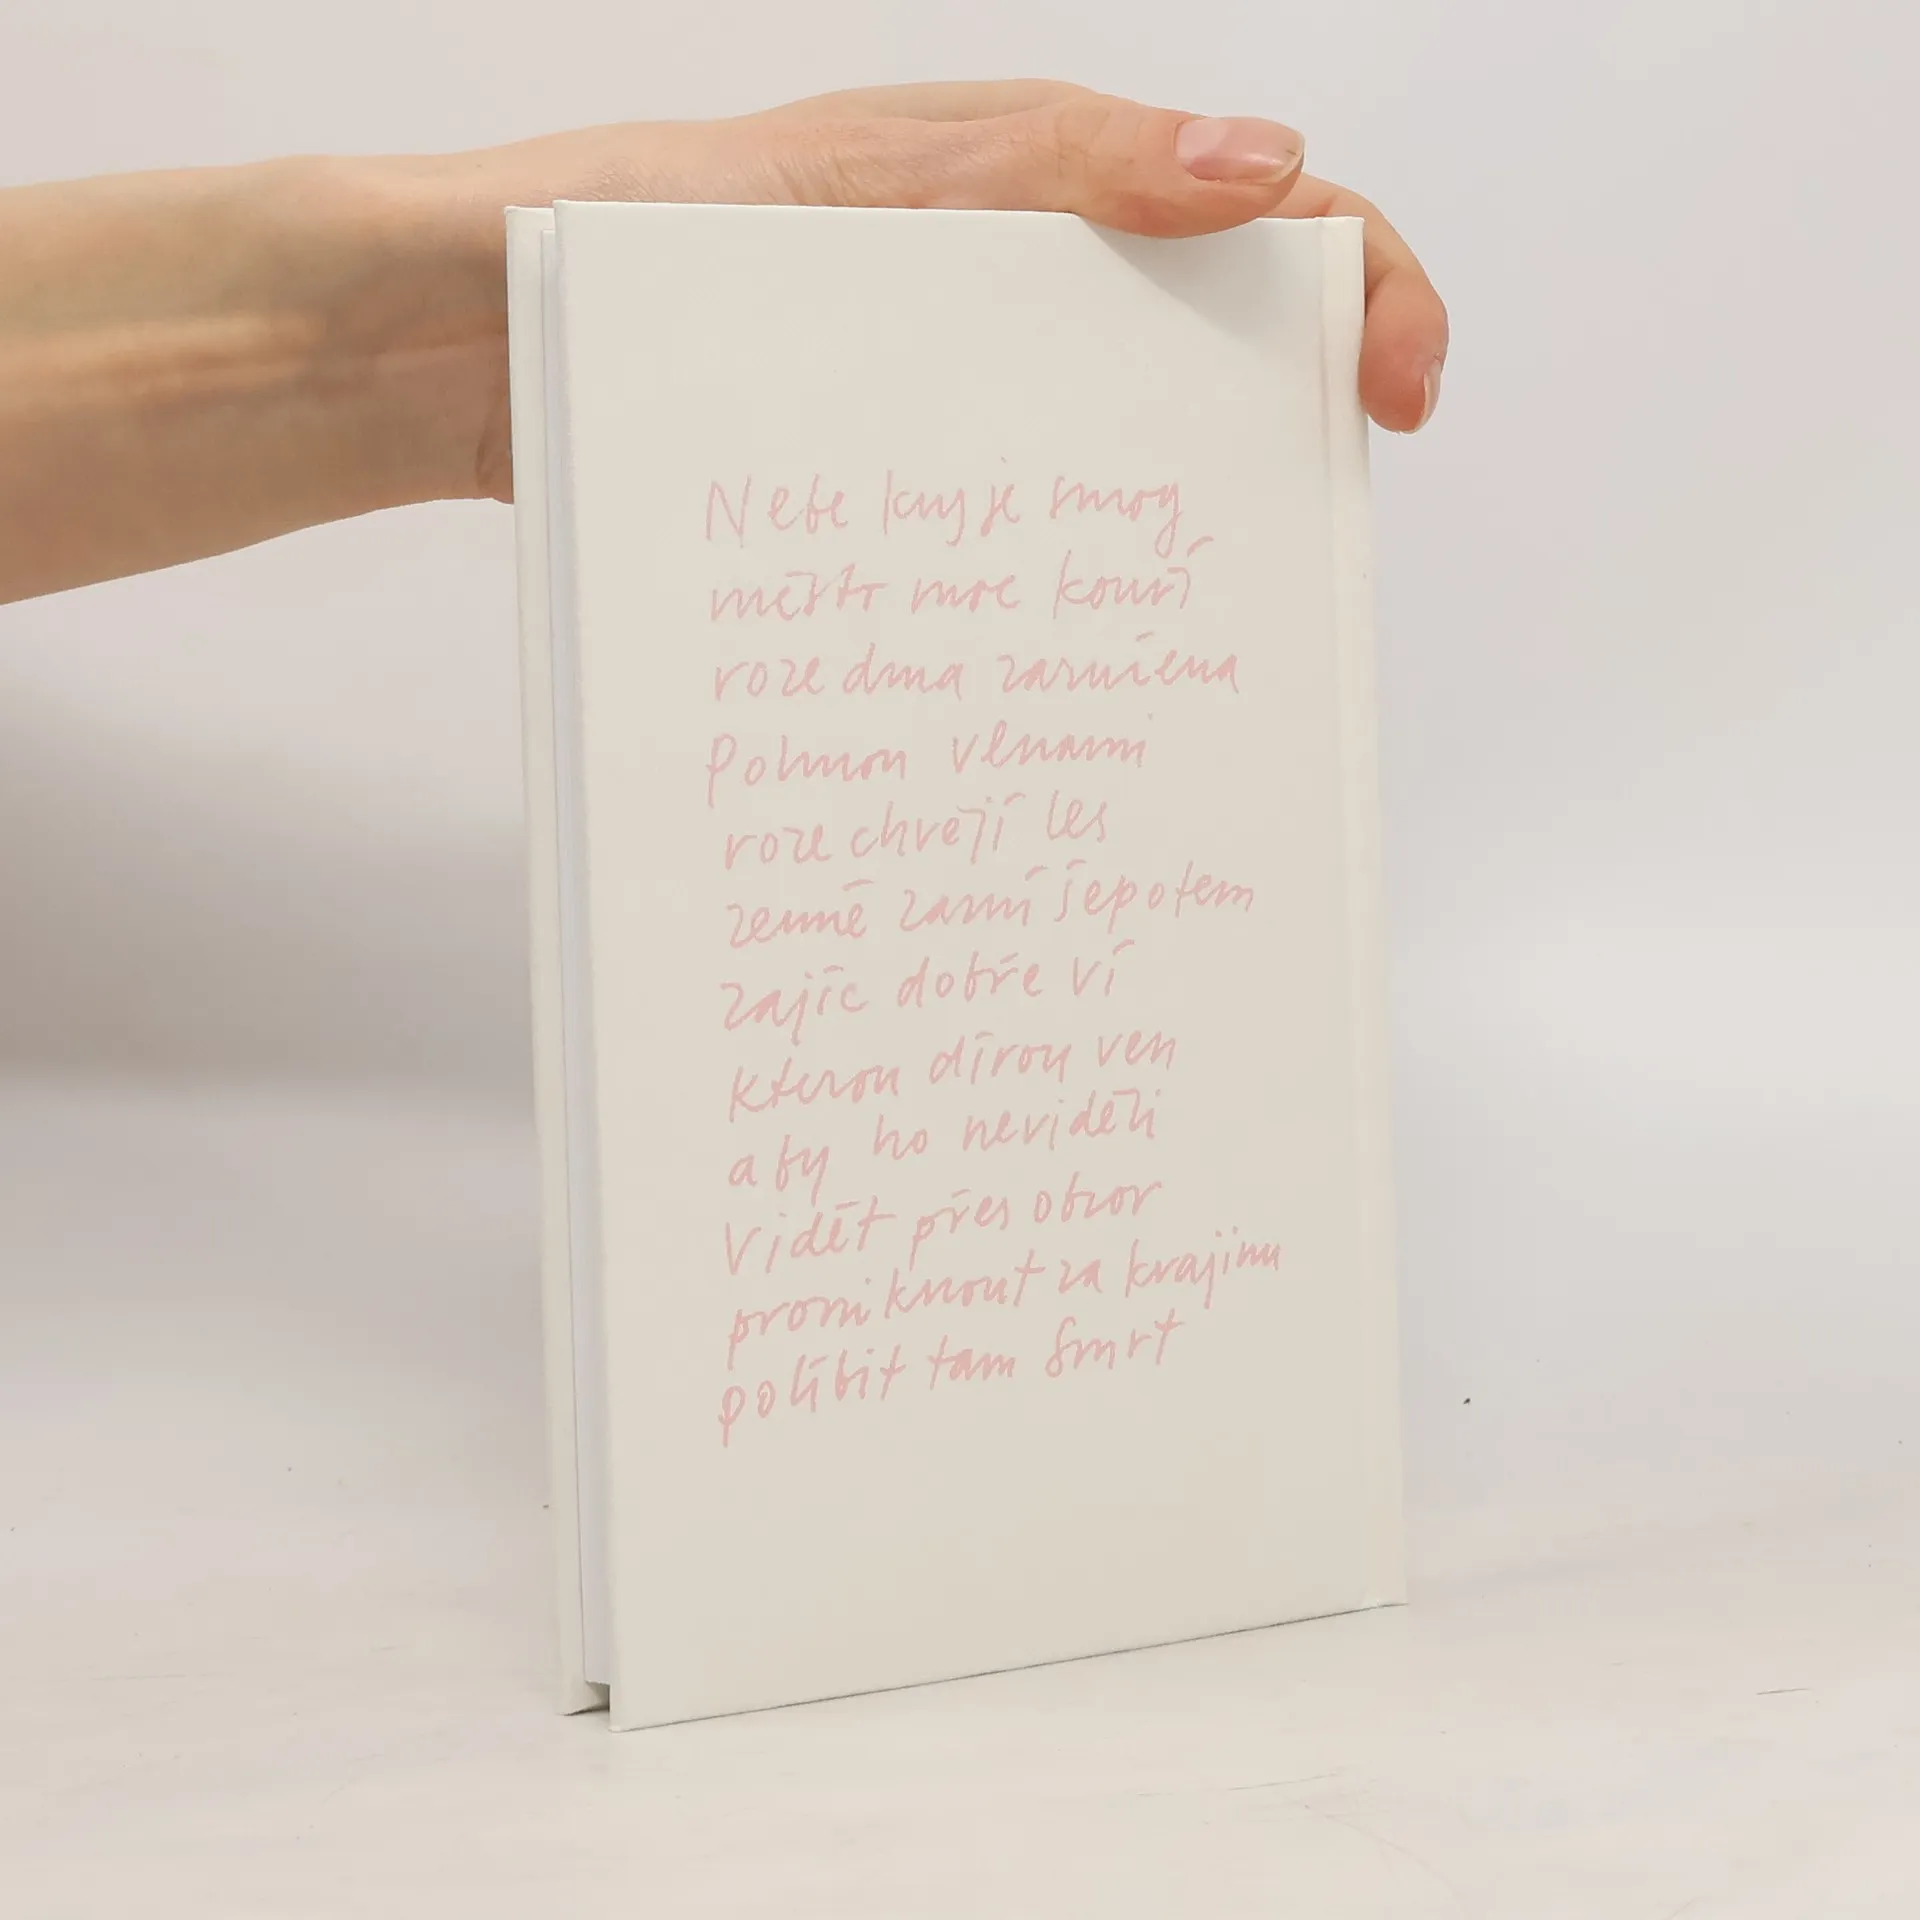 Nebe kryje smog
město moc kouří
rozedma zaručena
Pohnou vlnami
rozechvějí les
země zavní šepotem
zajíc dobře ví
kterou dírou ven
aby ho neviděli
Vidět přes obzor
proniknout za krajinu
políbit tam Smrt